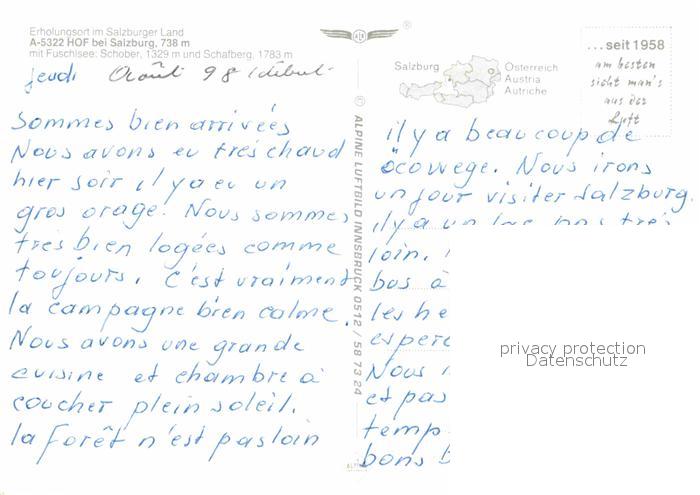 Erholungsort im Salzburger Land
A-5322 HOF bei Salzburg, 738 m
mit Fuschlsee: Schober, 1329 m und Schafberg, 1783 m
jeudi Août 98 début
Sommes bien arrivées
Nous avons eu très chaud
hier soir il y a eu un
gros orage. Nous sommes
très bien logées comme
toujours. C'est vraiment
la campagne bien calme.
Nous avons une grande
cuisine et chambre à
coucher plein soleil.
la forêt n'est pas loin
ALPINE LUFTBILD INNSBRUCK 0512 / 58 73 24
Salzburg
Österreich
Austria
Autriche
...seit 1958
am besten
sicht man's
aus der
Luft
il y a beaucoup de
. Nous irons
un jour visiter Salzburg.
il y a un lac pas très
loin.
bus à
les he
espere
Nous
et pas
temp
bons b
privacy protection
Datenschutz